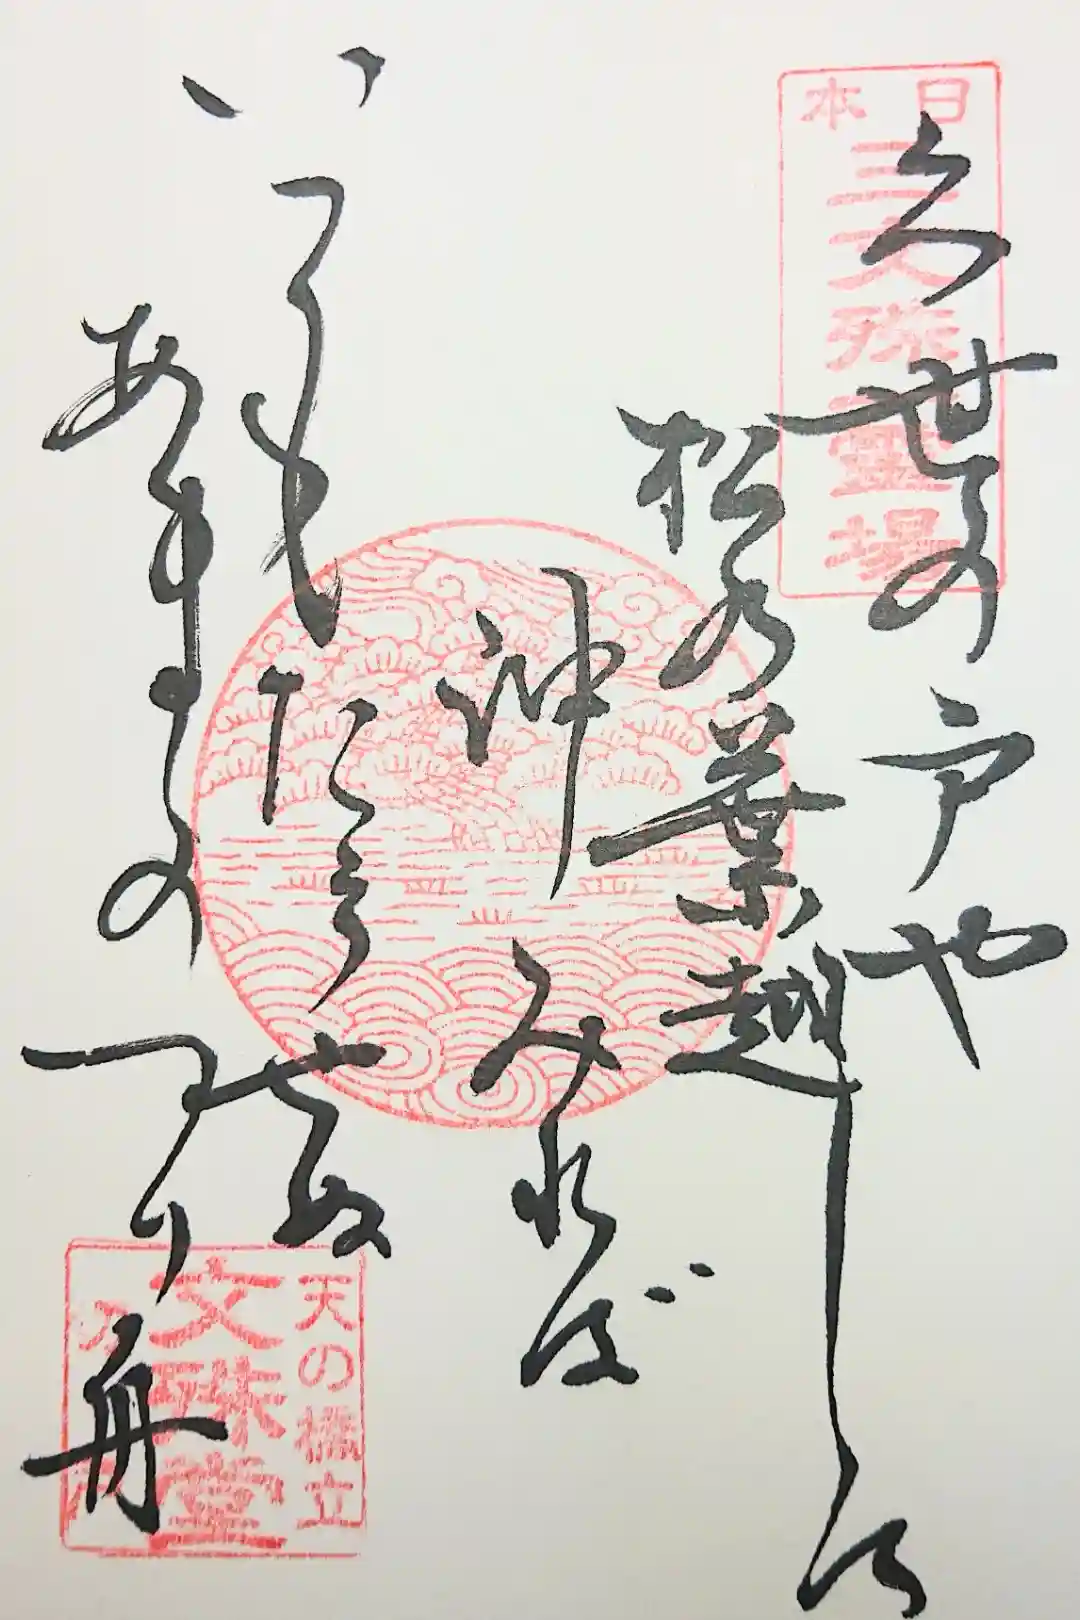 日本
三文殊霊場
久世の戸や
松の葉越しに
沖みれば
いつもたえせぬ
あまのつり舟
天の橋立
文殊堂